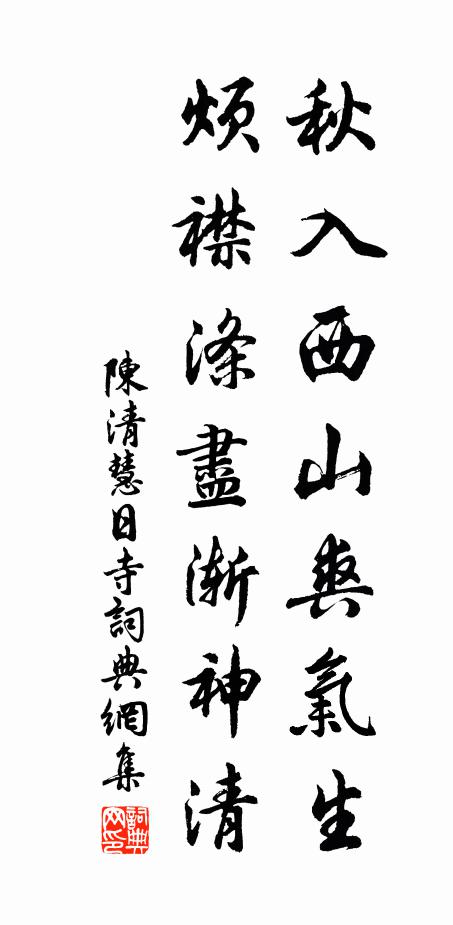 秋入西山爽氣生
煩襟滌盡漸神清
陳清慧日寺詞典網集
詞典網印